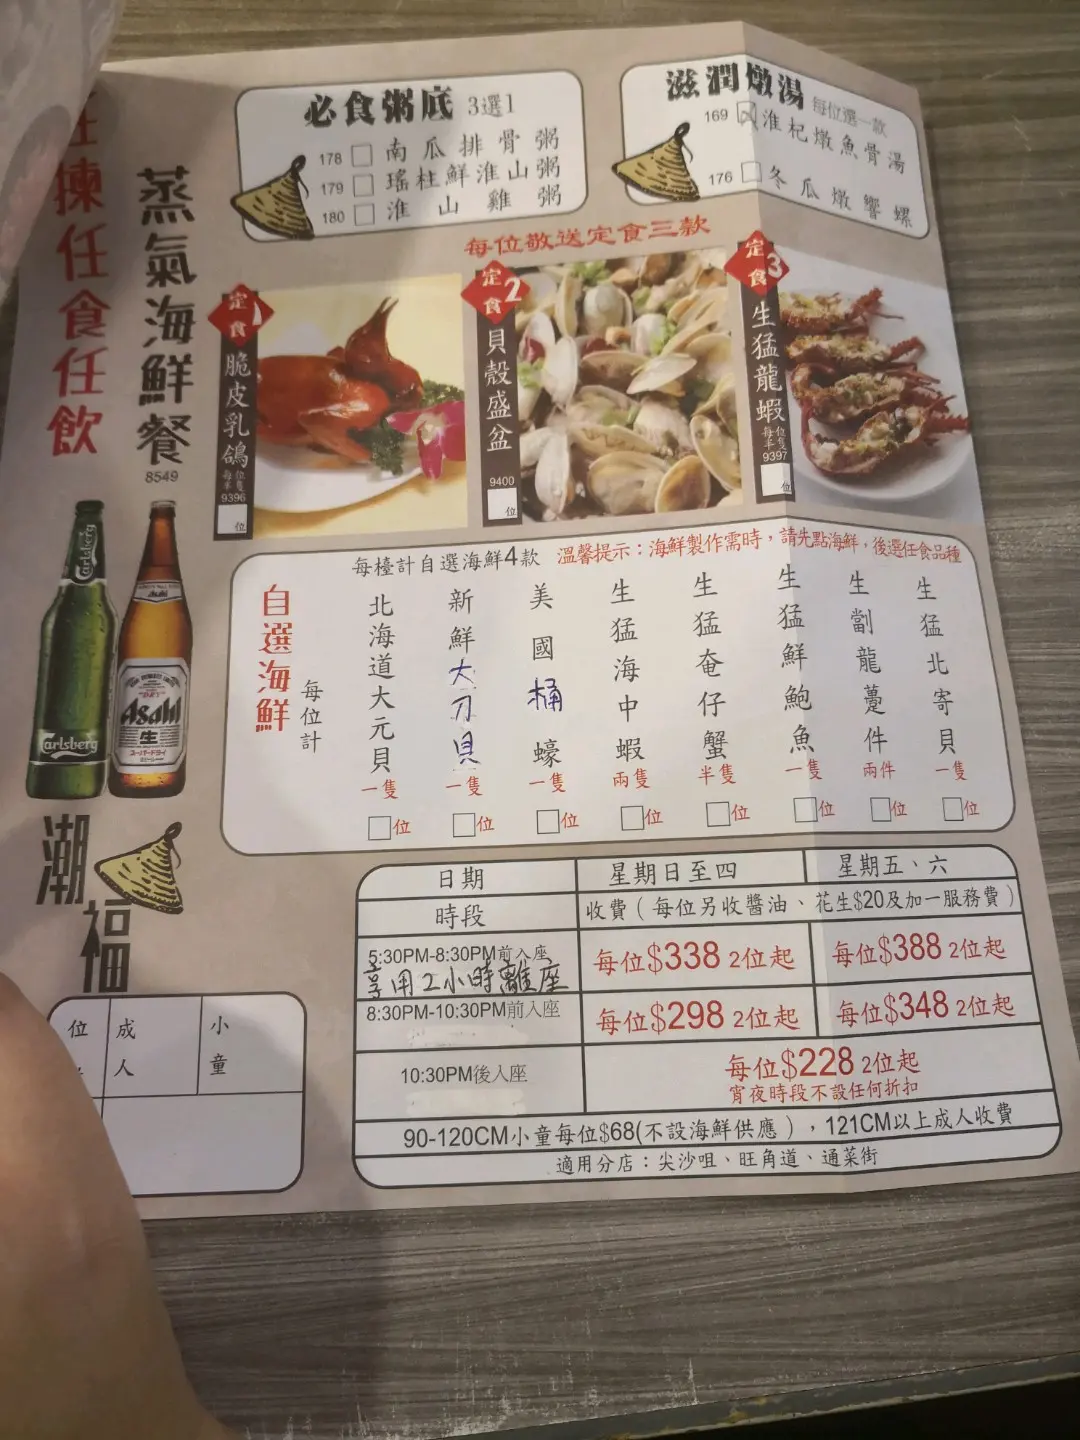 任揀任食任飲
蒸氣海鮮餐
8549
必食粥底 3選1
178 南瓜排骨粥
179 瑤柱鮮淮山粥
180 淮山雞粥
滋潤燉湯 每位選一款
169 淮杞燉魚骨湯
176 冬瓜燉響螺
每位敬送定食三款
定食1
脆皮乳鴿
每位半隻
9396
位
定食2
貝殼盛盆
9400
位
定食3
生猛龍蝦
每位半隻
9397
位
每檯計自選海鮮4款 溫馨提示：海鮮製作需時，請先點海鮮，後選任食品種
自選海鮮
每位計
北海道大元貝 一隻 位
新鮮大刀貝 一隻 位
美國桶蠔 一隻 位
生猛海中蝦 兩隻 位
生猛奄仔蟹 半隻 位
生猛鮮鮑魚 一隻 位
生劏龍躉件 兩件 位
生猛北寄貝 一隻 位
Carlsberg
Asahi
生
潮福
日期 星期日至四 星期五、六
時段 收費（每位另收醬油、花生$20及加一服務費）
5:30PM-8:30PM前入座 每位$338 2位起 每位$388 2位起
享用2小時離座
8:30PM-10:30PM前入座 每位$298 2位起 每位$348 2位起
10:30PM後入座 每位$228 2位起
宵夜時段不設任何折扣
90-120CM小童每位$68(不設海鮮供應），121CM以上成人收費
適用分店：尖沙咀、旺角道、通菜街
位 成人 小童